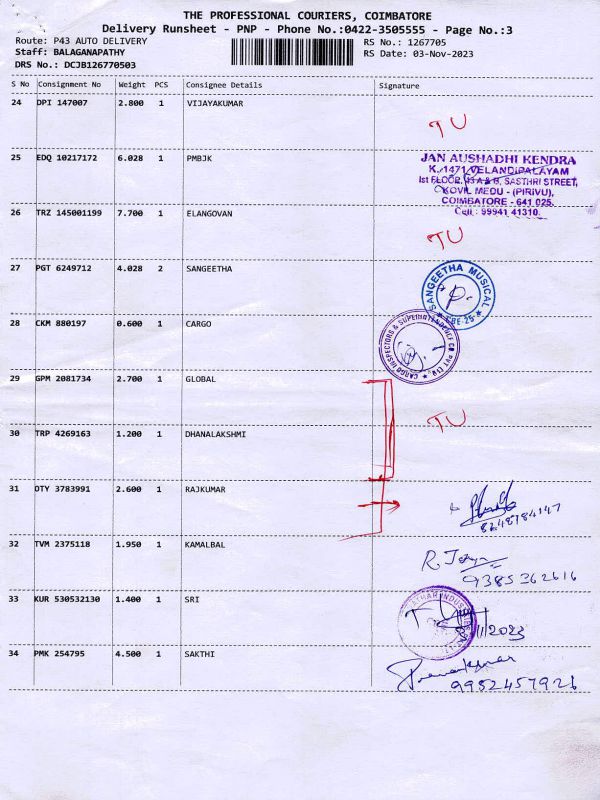 THE PROFESSIONAL COURIERS, COIMBATORE
Delivery Runsheet - PNP - Phone No.:0422-3505555 - Page No.:3
Route: P43 AUTO DELIVERY RS No.: 1267705
Staff: BALAGANAPATHY RS Date: 03-Nov-2023
DRS No.: DCJB126770503
S No Consignment No Weight PCS Consignee Details Signature
24 DPI 147007 2.800 1 VIJAYAKUMAR TU
25 EDQ 10217172 6.028 1 PMBJK
JAN AUSHADHI KENDRA
K. 1471, VELANDIPALAYAM
1st FLOOR, 13 A & B, SASTHRI STREET,
KOVIL MEDU - (PIRIVU),
COIMBATORE - 641 025.
Cell : 99941 41310.
26 TRZ 145001199 7.700 1 ELANGOVAN TU
27 PGT 6249712 4.028 2 SANGEETHA
SANGEETHA MUSICAL
CBE-25
28 CKM 880197 0.600 1 CARGO
CARGO INSPECTORS & SUPERINTENDENCE CO PVT LTD
29 GPM 2081734 2.700 1 GLOBAL TU
30 TRP 4269163 1.200 1 DHANALAKSHMI
31 OTY 3783991 2.600 1 RAJKUMAR
8248984147
32 TVM 2375118 1.950 1 KAMALBAL
9385362616
33 KUR 530532130 1.400 1 SRI
34 PMK 254795 4.500 1 SAKTHI
9952457926